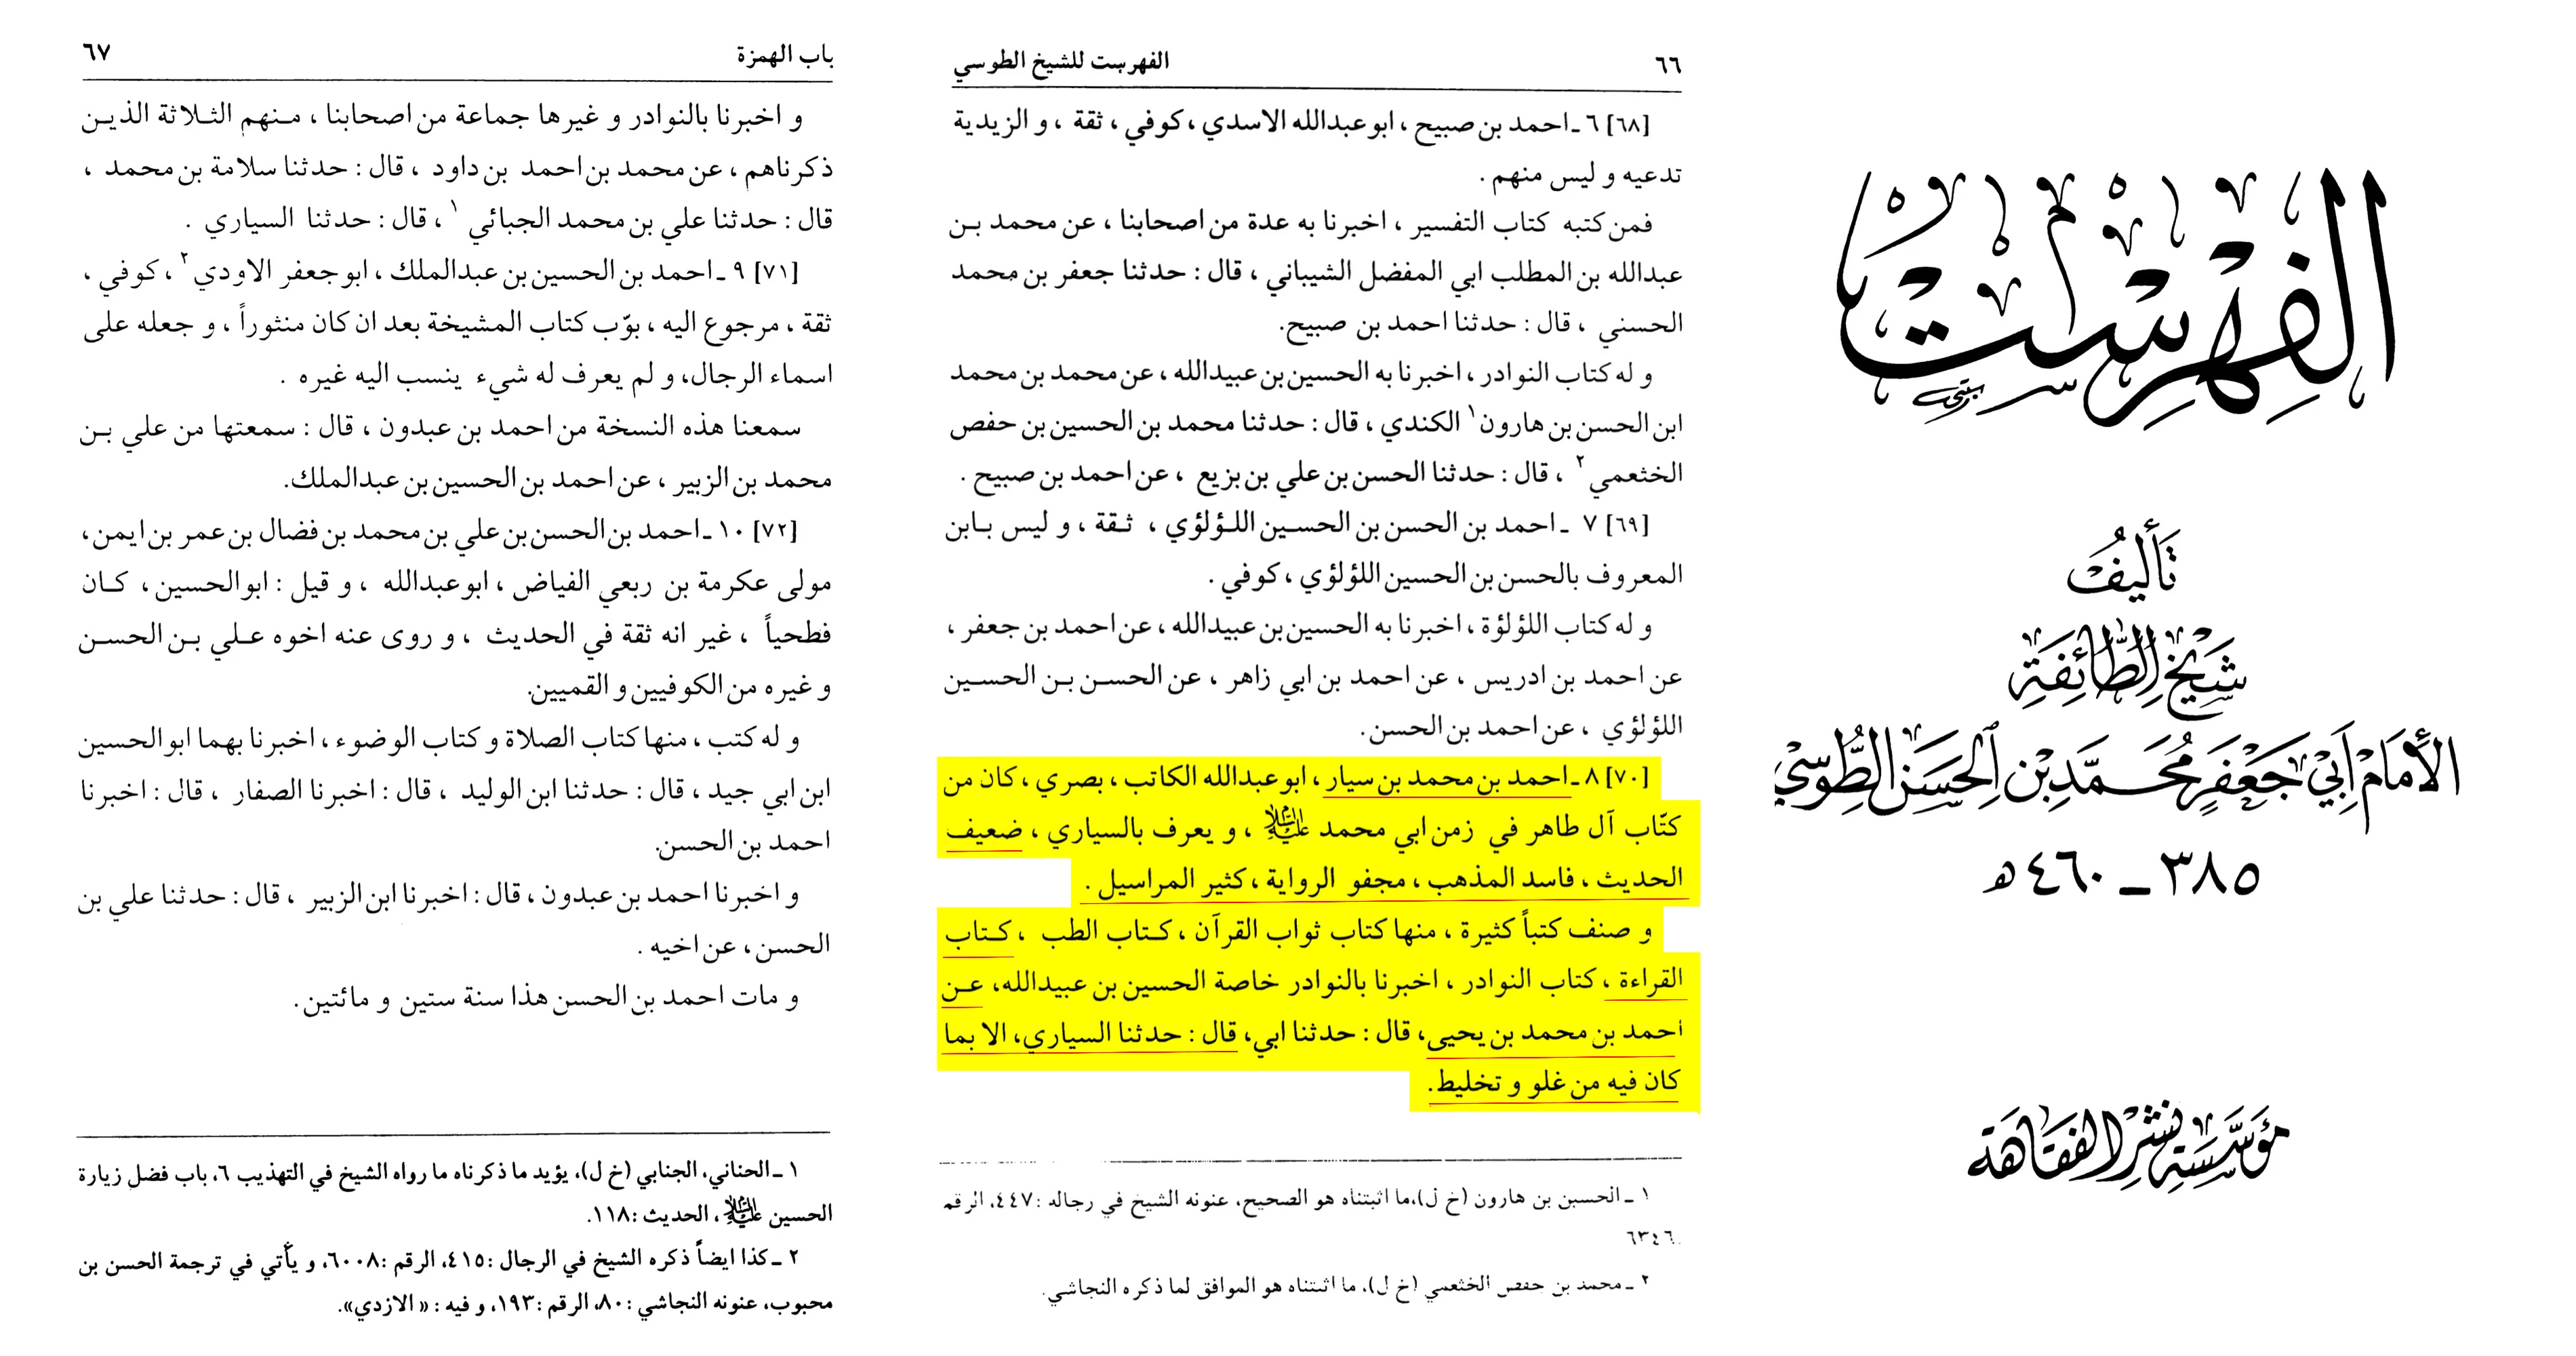 الفِهْرِسْت
تأليف
شَيْخِ الطَّائِفَةِ
الإِمَامِ أَبِي جَعْفَرٍ مُحَمَّدِ بْنِ الْحَسَنِ الطُّوسِيّ
٣٨٥ ـ ٤٦٠ ه
مؤسسة نشر الفقاهة
٦٦ الفهرست للشيخ الطوسي
[٦٨] ٦ ـ احمد بن صبيح ، ابو عبدالله الاسدي ، كوفي ، ثقة ، و الزيدية
تدعيه و ليس منهم .
فمن كتبه كتاب التفسير ، اخبرنا به عدة من اصحابنا ، عن محمد بن
عبدالله بن المطلب ابي المفضل الشيباني ، قال : حدثنا جعفر بن محمد
الحسني ، قال : حدثنا احمد بن صبيح.
و له كتاب النوادر ، اخبرنا به الحسين بن عبيدالله ، عن محمد بن محمد
ابن الحسن بن هارون١ الكندي ، قال : حدثنا محمد بن الحسين بن حفص
الخثعمي٢ ، قال : حدثنا الحسن بن علي بن بزيع ، عن احمد بن صبيح .
[٦٩] ٧ ـ احمد بن الحسن بن الحسين اللؤلؤي ، ثقة ، و ليس بابن
المعروف بالحسن بن الحسين اللؤلؤي ، كوفي .
و له كتاب اللؤلؤة ، اخبرنا به الحسين بن عبيدالله ، عن احمد بن جعفر ،
عن احمد بن ادريس ، عن احمد بن ابي زاهر ، عن الحسن بن الحسين
اللؤلؤي ، عن احمد بن الحسن.
[٧٠] ٨ ـ احمد بن محمد بن سيار ، ابو عبدالله الكاتب ، بصري ، كان من
كتّاب آل طاهر في زمن ابي محمد عليه السلام ، و يعرف بالسياري ، ضعيف
الحديث ، فاسد المذهب ، مجفو الرواية ، كثير المراسيل .
و صنف كتباً كثيرة ، منها كتاب ثواب القرآن ، كتاب الطب ، كتاب
القراءة ، كتاب النوادر ، اخبرنا بالنوادر خاصة الحسين بن عبيدالله، عن
احمد بن محمد بن يحيى، قال : حدثنا ابي، قال : حدثنا السياري، الا بما
كان فيه من غلو و تخليط.
١ ـ الحسين بن هارون (خ ل)،ما اثبتناه هو الصحيح، عنونه الشيخ في رجاله :٤٤٧، الرقم
.٦٣٤٦
٢ ـ محمد بن حفص الخثعمي (خ ل)، ما اثبتناه هو الموافق لما ذكره النجاشي.
باب الهمزة ٦٧
و اخبرنا بالنوادر و غيرها جماعة من اصحابنا ، منهم الثلاثة الذين
ذكرناهم ، عن محمد بن احمد بن داود ، قال : حدثنا سلامة بن محمد ،
قال : حدثنا علي بن محمد الجبائي١ ، قال : حدثنا السياري .
[٧١] ٩ ـ احمد بن الحسين بن عبدالملك ، ابو جعفر الاودي٢ ، كوفي ،
ثقة ، مرجوع اليه ، بوّب كتاب المشيخة بعد ان كان منثوراً ، و جعله على
اسماء الرجال، و لم يعرف له شيء ينسب اليه غيره .
سمعنا هذه النسخة من احمد بن عبدون ، قال : سمعتها من علي بن
محمد بن الزبير ، عن احمد بن الحسين بن عبدالملك.
[٧٢] ١٠ ـ احمد بن الحسن بن علي بن محمد بن فضال بن عمر بن ايمن،
مولى عكرمة بن ربعي الفياض ، ابو عبدالله ، و قيل : ابو الحسين ، كان
فطحياً ، غير انه ثقة في الحديث ، و روى عنه اخوه علي بن الحسن
و غيره من الكوفيين و القميين.
و له كتب ، منها كتاب الصلاة و كتاب الوضوء ، اخبرنا بهما ابو الحسين
ابن ابي جيد ، قال : حدثنا ابن الوليد ، قال : اخبرنا الصفار ، قال : اخبرنا
احمد بن الحسن.
و اخبرنا احمد بن عبدون ، قال : اخبرنا ابن الزبير ، قال : حدثنا علي بن
الحسن، عن اخيه .
و مات احمد بن الحسن هذا سنة ستين و مائتين.
١ ـ الحناني، الجنابي (خ ل)، يؤيد ما ذكرناه ما رواه الشيخ في التهذيب ٦، باب فضل زيارة
الحسين عليه السلام ، الحديث :١١٨.
٢ ـ كذا ايضاً ذكره الشيخ في الرجال :٤١٥، الرقم :٦٠٠٨، و يأتي في ترجمة الحسن بن
محبوب، عنونه النجاشي :٨٠، الرقم :١٩٣، و فيه : « الازدي».